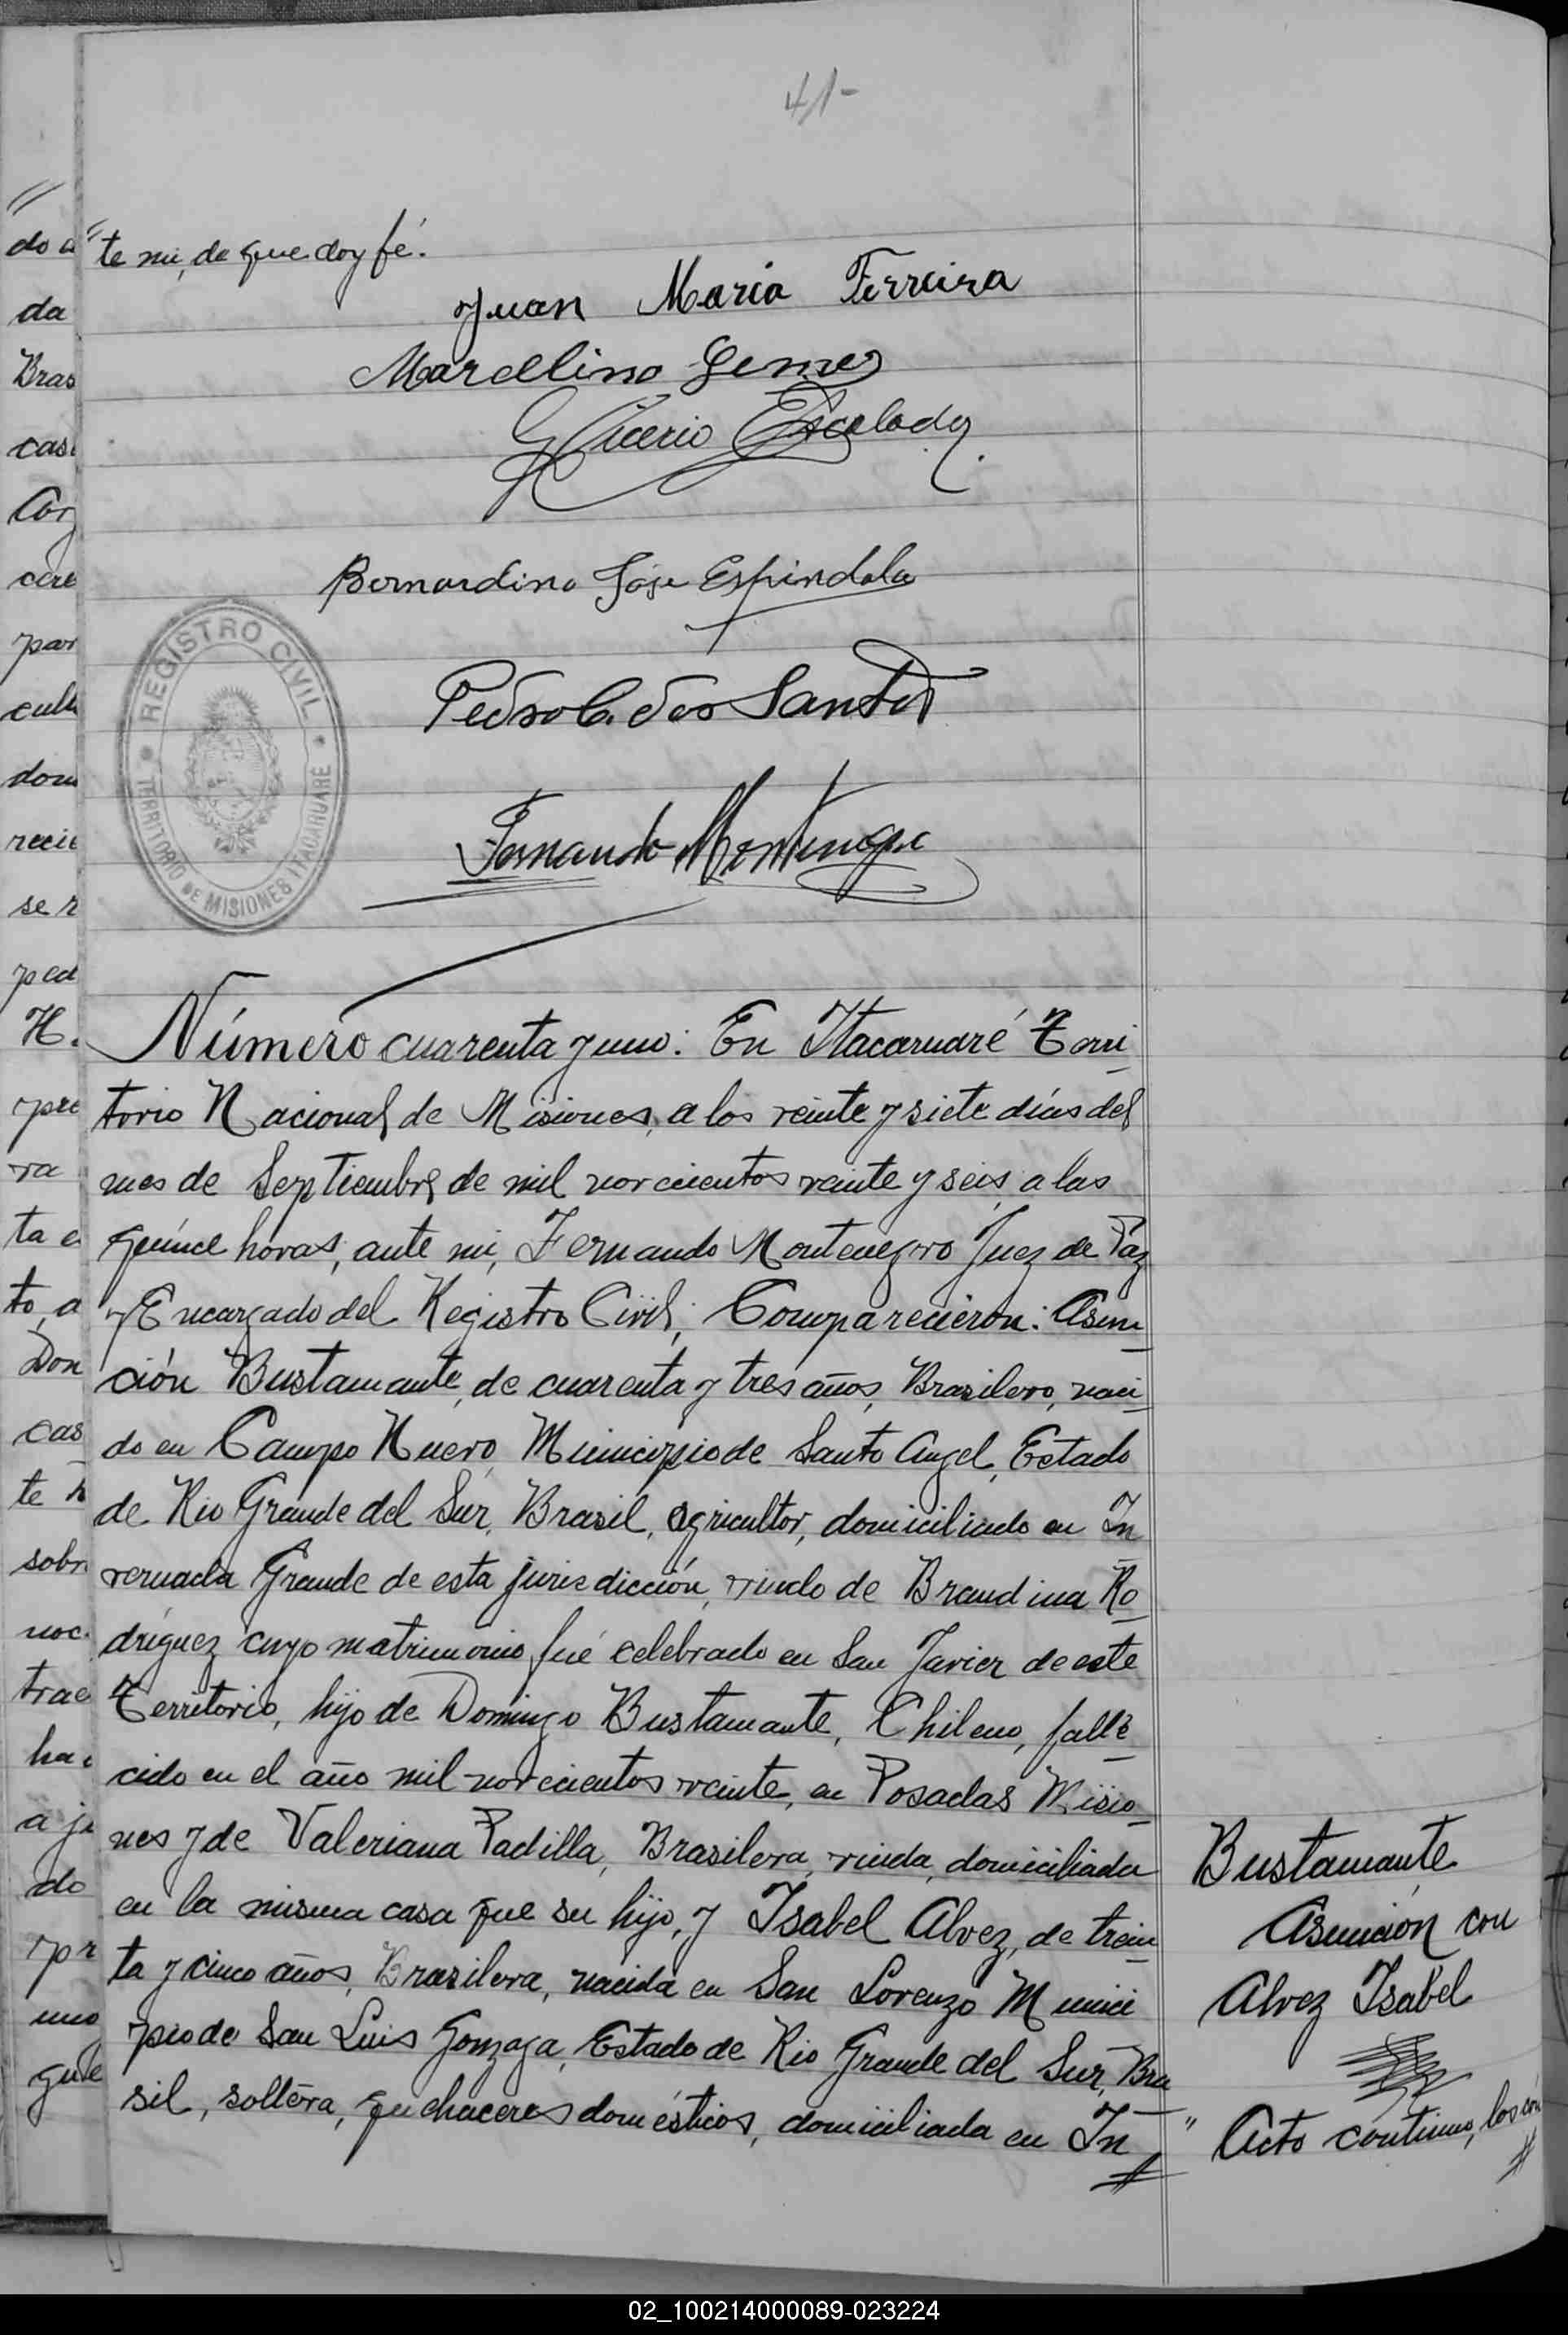 41-
"te mí, de que doy fé.
Juan Maria Ferreira
Marcelino Gomez
Glicerio Escalada
Bernardino José Espindola
REGISTRO CIVIL
TERRITORIO DE MISIONES ITACARUARE
Pedro C. dos Santos
Fernando Montenegro
Número cuarenta y uno: En Itacaruaré Terri
torio Nacional de Misiones, a los veinte y siete días del
mes de Septiembre de mil novecientos veinte y seis, a las
quince horas, ante mí, Fernando Montenegro Juez de Paz
y Encargado del Registro Civil; Comparecieron: Asun
ción Bustamante, de cuarenta y tres años, Brasilero, naci
do en Campo Nuevo, Municipio de Santo Angel, Estado
de Rio Grande del Sur, Brasil, agricultor, domiciliado en In
vernada Grande de esta jurisdicción, viudo de Braudina Ro
dríguez cuyo matrimonio fué celebrado en San Javier de este
Territorio, hijo de Domingo Bustamante, Chileno, falle
cido en el año mil novecientos veinte, en Posadas Misio
nes y de Valeriana Padilla, Brasilera, viuda, domiciliada
en la misma casa que su hijo, y Isabel Alvez, de trein
ta y cinco años, Brasilera, nacida en San Lorenzo Munici
pio de San Luis Gonzaga, Estado de Rio Grande del Sur, Bra
sil, soltera, quehaceres domésticos, domiciliada en In
Bustamante
Asunción con
Alvez Isabel
" Acto contínuo, los con
do a
da
Bras
cas
cere
par
cult
dom
recie
se r
ped
H.
pre
ra
ta e
to, a
Don
cas
te h
sobr
noc
trae
hac
a ju
do
pr
uno
que
02_100214000089-023224